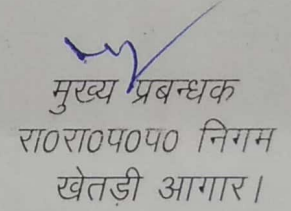 मुख्य प्रबन्धक
रा0रा0प0प0 निगम
खेतड़ी आगार।